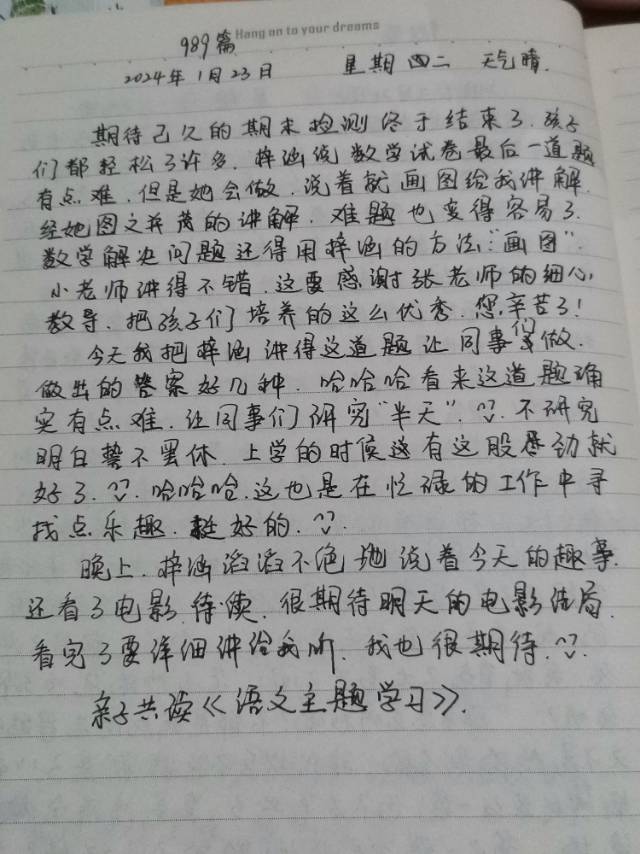 Hang on to your dreams
989篇
2024年1月23日 星期四二 天气晴.
期待已久的期末检测终于结束了.孩子
们都轻松了许多.梓涵说数学试卷最后一道题
有点难.但是她会做.说着就画图给我讲解.
经她图文并茂的讲解.难题也变得容易了.
数学解决问题还得用梓涵的方法:"画图".
小老师讲得不错.这要感谢张老师的细心
教导.把孩子们培养的这么优秀.您辛苦了!
今天我把梓涵讲得这道题让同事们做.
做出的答案好几种.哈哈哈看来这道题确
实有点难.让同事们研究"半天".不研究
明白誓不罢休.上学的时候这有这股劲就
好了.哈哈哈.这也是在忙碌的工作中寻
找点乐趣.挺好的.
晚上.梓涵滔滔不绝地说着今天的趣事.
还看了电影.待续.很期待明天的电影结局.
看完了要详细讲给我听.我也很期待.
亲子共读《语文主题学习》.